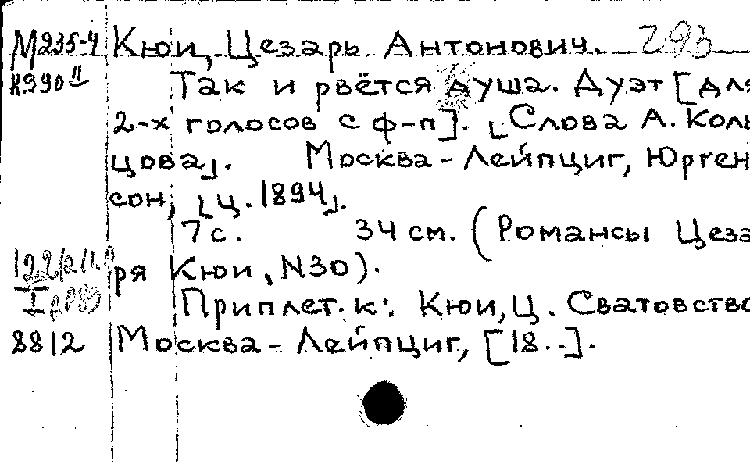 М235-4 Кюи, Цезарь Антонович. 293
К990 II Так и рвётся душа. Дуэт [для
2-х голосов с ф-п]. [Слова А. Коль
цова]. Москва-Лейпциг, Юрген
сон, [ц. 1894].
7 с. 34 см. (Романсы Цеза
ря Кюи, N30).
Приплет. к: Кюи, Ц. Сватовство
8812 Москва-Лейпциг, [18..].